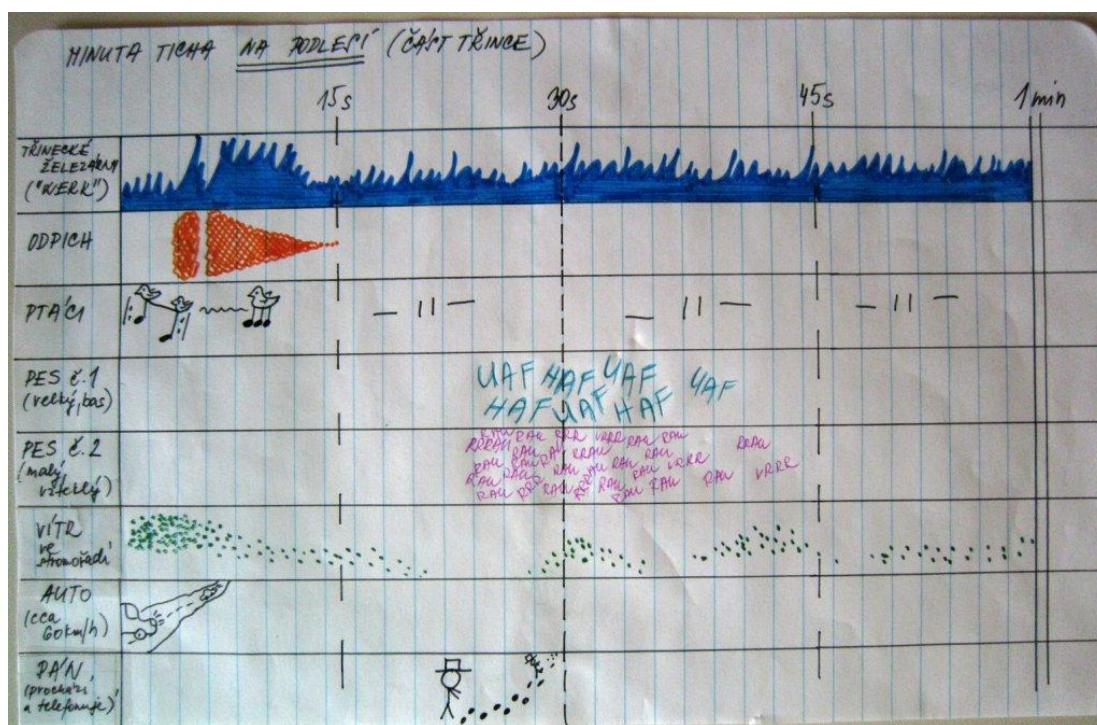 MINUTA TICHA NA PODLESÍ (ČÁST TŘINCE)
15s 30s 45s 1 min
TŘINECKÉ
ŽELEZÁRNY
("WERK")
ODPICH
PTÁCI
PES č.1
(velký, bas)
UAF HAF UAF UAF
HAF UAF HAF
PES č.2
(malý,
vzteklý)
RAU
RRRAU RAU RRR VRRR RAU RAU
RRAU
RAU VRRR
VÍTR
ve
stromořadí
AUTO
(cca
60km/h)
PÁN
(prochází
a telefonuje)